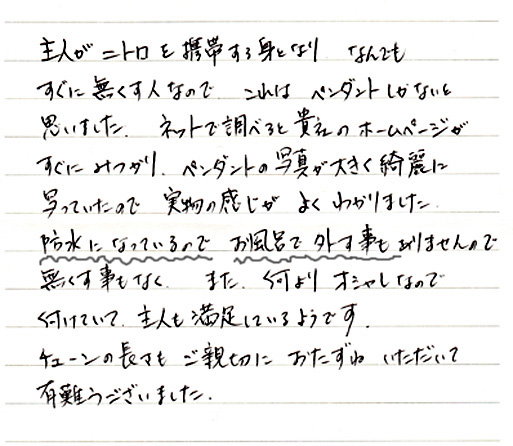 主人がニトロを携帯する身となり なんでも
すぐに無くす人なので これは ペンダントしかないと
思いました。 ネットで調べると貴社のホームページが
すぐにみつかり、ペンダントの写真が大きく綺麗に
写っていたので 実物の感じが よくわかりました。
防水になっているので お風呂で外す事もありませんので
無くす事もなく また、何より オシャレなので
付けていて、主人も満足しているようです。
チェーンの長さも ご親切に おたずね いただいて
有難うございました。